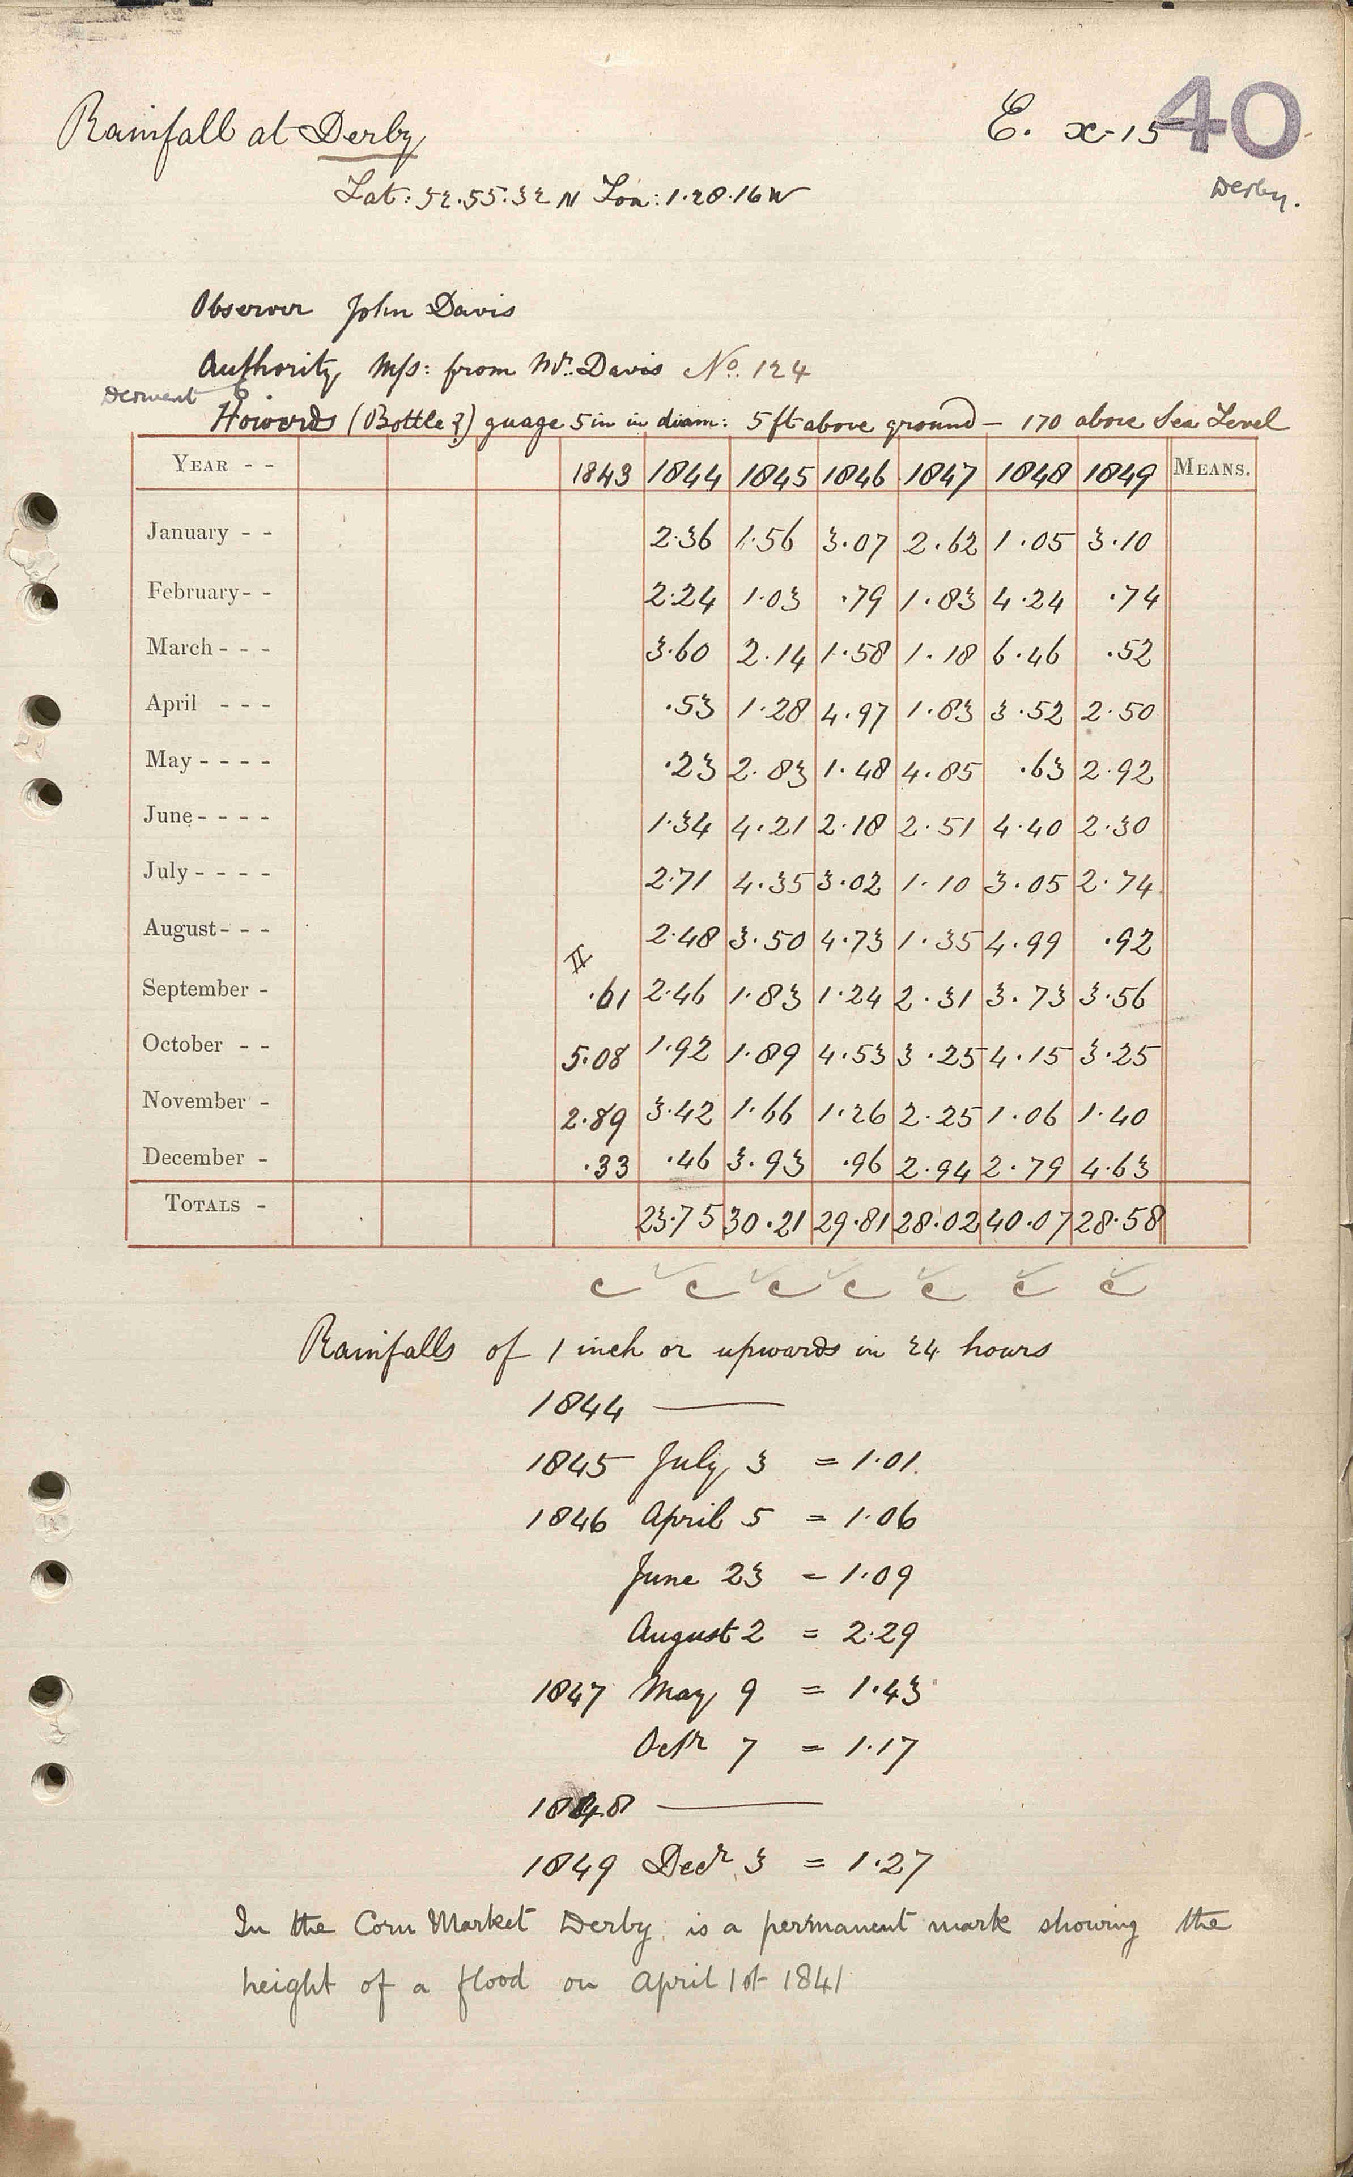 40
Rainfall at Derby
E. x-15
Lat: 52.55.32 N Lon: 1.28.16 W
Derby.
Observer John Davis
Authority M/s: from Mr. Davis No. 124
Derwent 6.
Howards (Bottle?) guage 5 in in diam: 5 ft above ground - 170 above Sea Level
YEAR - - 1843 1844 1845 1846 1847 1848 1849 MEANS.
January - - 2.36 1.56 3.07 2.62 1.05 3.10
February - - 2.24 1.03 .79 1.83 4.24 .74
March - - - 3.60 2.14 1.58 1.18 6.46 .52
April - - - .53 1.28 4.97 1.83 3.52 2.50
May - - - - .23 2.83 1.48 4.85 .63 2.92
June - - - - 1.34 4.21 2.18 2.51 4.40 2.30
July - - - - 2.71 4.35 3.02 1.10 3.05 2.74
August - - - 2.48 3.50 4.73 1.35 4.99 .92
II
September - .61 2.46 1.83 1.24 2.31 3.73 3.56
October - - 5.08 1.92 1.89 4.53 3.25 4.15 3.25
November - 2.89 3.42 1.66 1.26 2.25 1.06 1.40
December - .33 .46 3.93 .96 2.94 2.79 4.63
TOTALS - 23.75 30.21 29.81 28.02 40.07 28.58
c c c c c c c
Rainfalls of 1 inch or upwards in 24 hours
1844 ———
1845 July 3 = 1.01
1846 April 5 = 1.06
June 23 = 1.09
August 2 = 2.29
1847 May 9 = 1.43
Octr 7 = 1.17
1848 ———
1849 Decr 3 = 1.27
In the Corn Market Derby is a permanent mark showing the
height of a flood on April 1st 1841